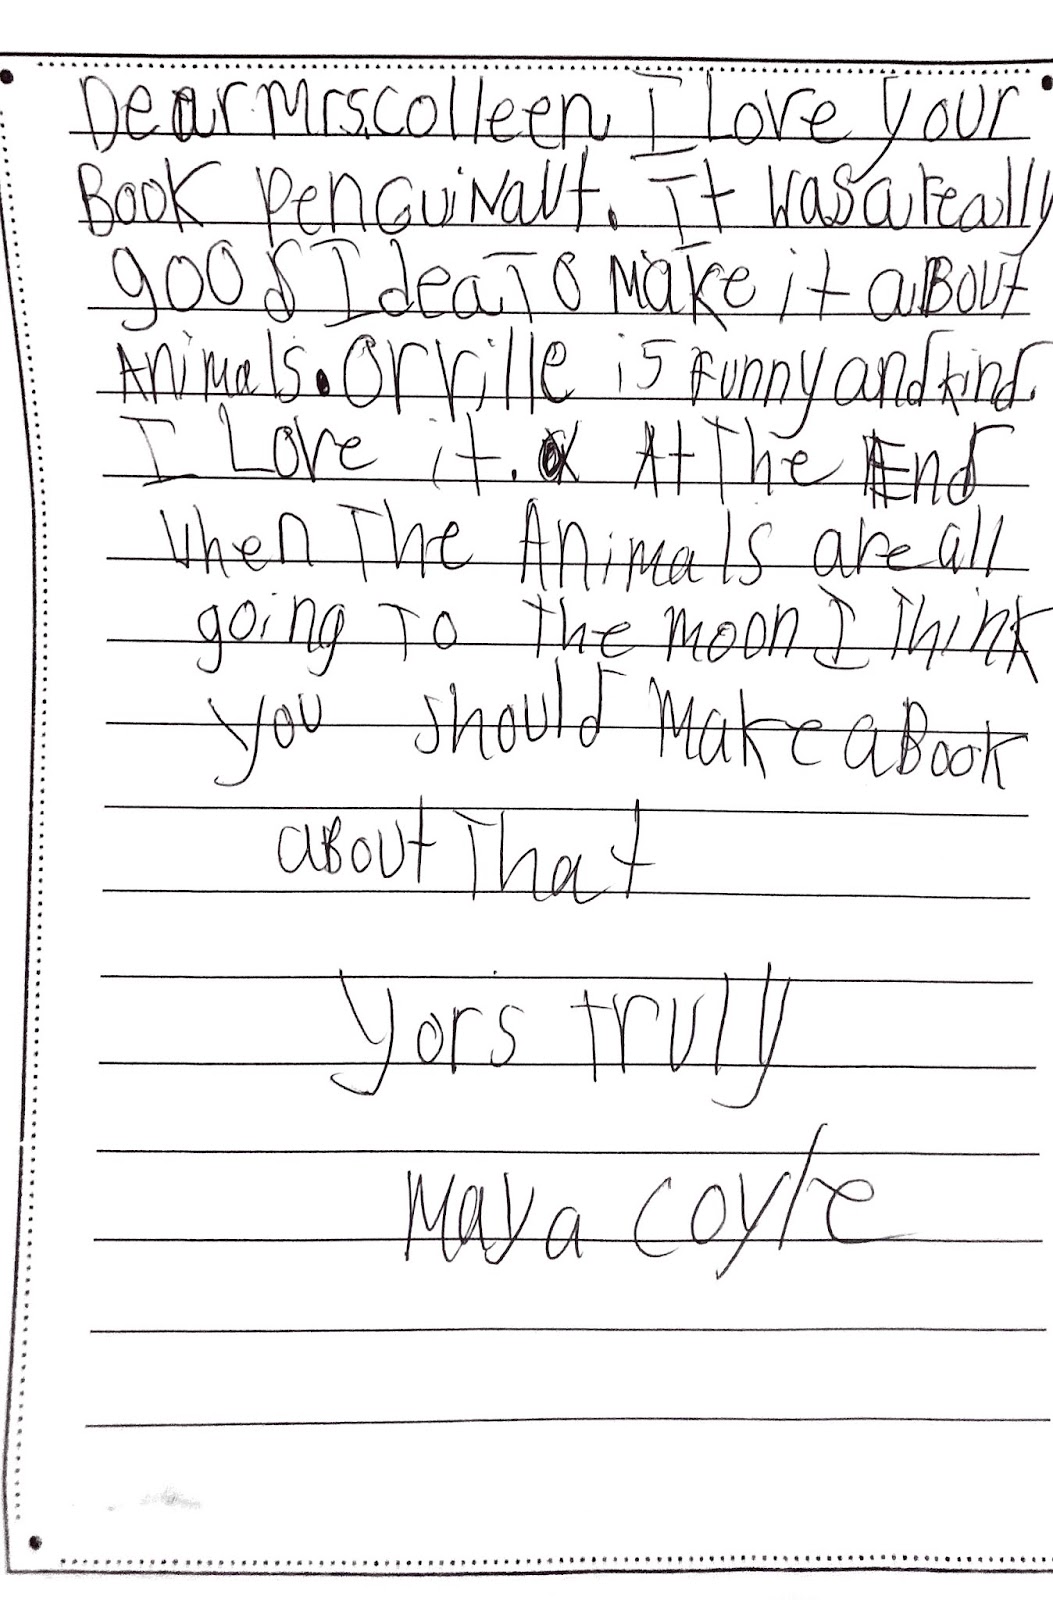 Dear Mrs.colleen I Love your
Book PenGuiNaut. It was a really
good Idea To Make it aBout
ANiMals. Orville is Funny and kind
I Love it. At The End
when The ANiMals are all
going To The Moon I Think
you should Make a Book
aBout That
yors truly
Maya Coyle